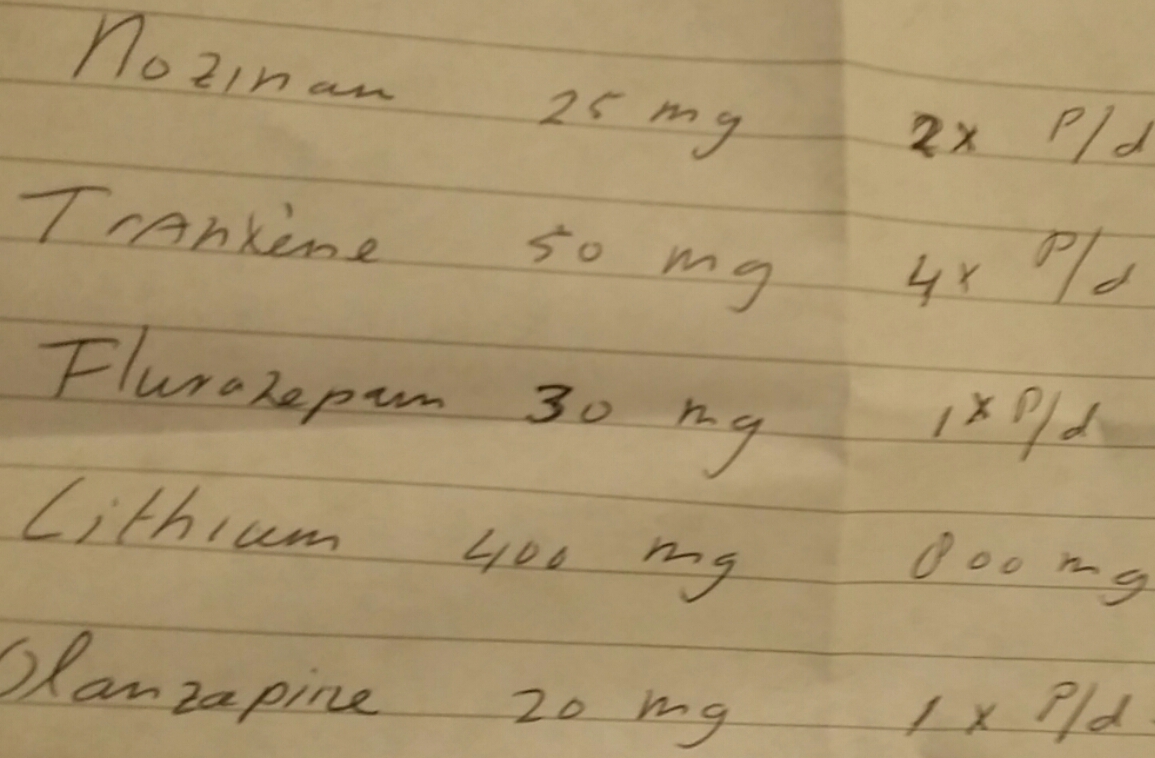 Nozinan 25 mg 2x P/d
Tranxène 50 mg 4x P/d
Flurazepam 30 mg 1x P/d
Lithium 400 mg 800 mg
Olanzapine 20 mg 1x P/d.